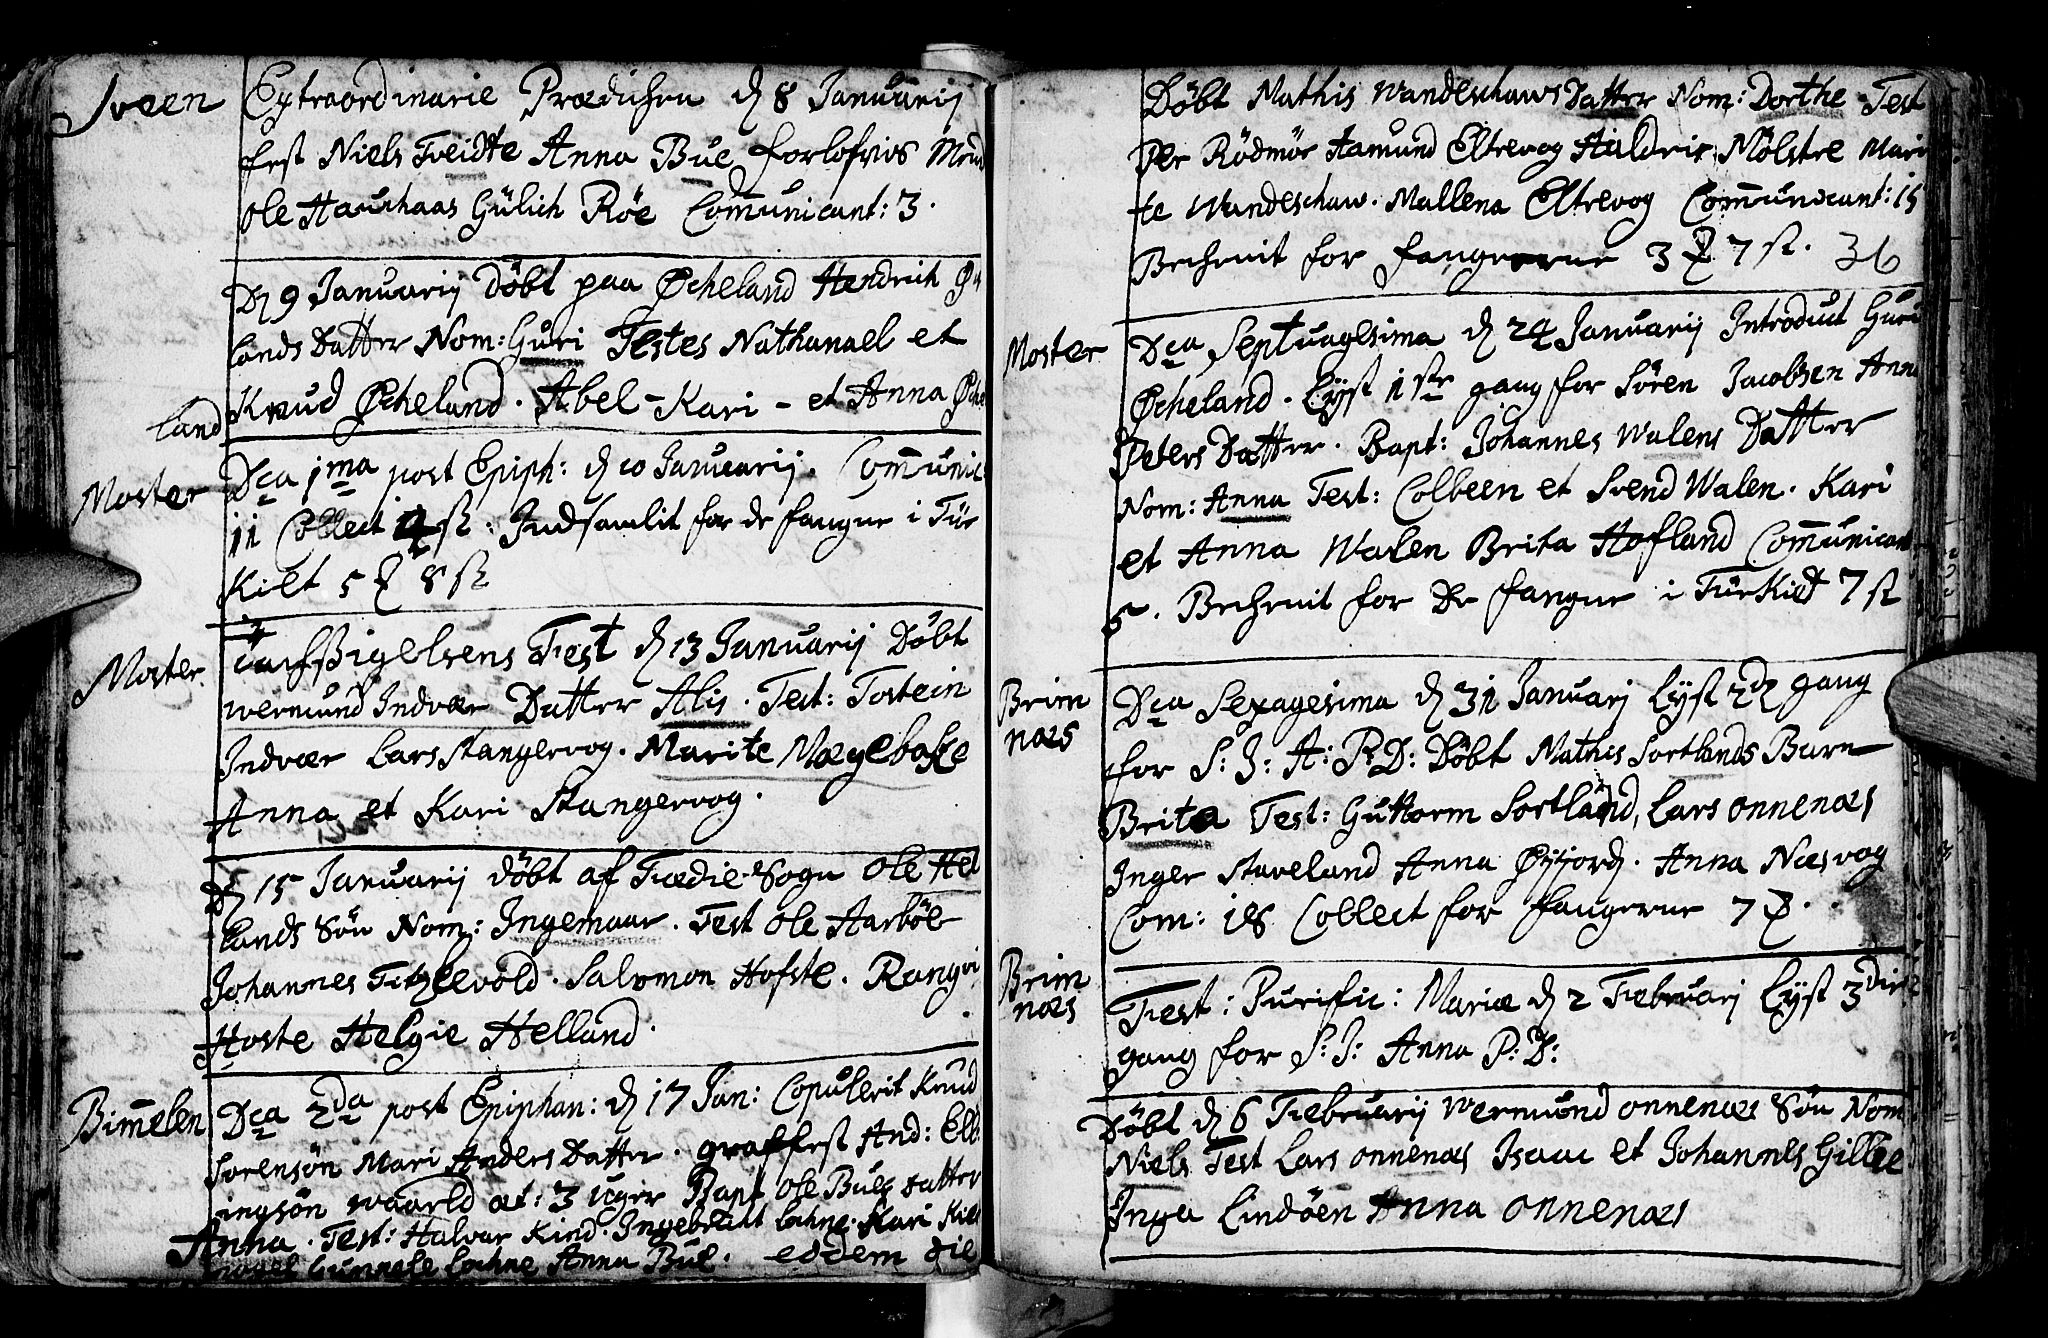 Sveen
Extraordinarie Prædichen d 8 Januarij
fest Niels Tveidte Anna Bue forlofvis
Ole Hauchaas Gülich Röe Com̄unicant: 3.
D 9 Januarij Döbt paa Øcheland Hendrich Øch
lands Datter Nom: Guri Testes Nathanael et
Knud Øcheland. Abel - Kari - et Anna Øche
land
Moster
Dca 1ma post Epiph: d 10 Januarij. Com̄unic:
11 Collect ß. Indsamlit for de fangne i Tür
Kilt 5 8 ß
Moster.
Tachsigelsens Fest d 13 Januarij Döbt
Wermund Indvær Datter Alis. Test: Tostein
Indvær Lars Stangervog. Marite Mægebost
Anna et Kari Stangervog.
D 15 Januarij döbt af Fædie-Sogn Ole Hel
lands Sön Nom: Ingemaar. Test Ole Aarböe
Johannes Salomon Hofste. Rangvi
Hoste Helgie Helland.
Bim̄elen
Dca 2da post Epiphan: d 17 Jan: Copulerit Knud
Sorensön Mari Anders Datter. graffest And: Elb
ingsön æt: 3 uger Bapt Ole Bues Datter
Anna. Test: Halvar Kind. Ingebricht Lochne. Kari
Gunnele Lochne Anna Bue. eodem die
Döbt Mathis Wandeschaws Datter Nom: Dorthe Test
Per Rödmör Hamund Eltrevog Haldrie Mölstre Mari
te Wandeschaw. Mallena Eltrevog Com̄unicant: 15
Bechemit for fangerne 3 7 ß. 36
Moster
Dca Septuagesima d 24 Januarij Introduct Guri
Øcheland. Lyst 1ste gang for Sören Jacobsen Anna
Peters Datter. Bapt: Johannes Walens Datter
Nom: Anna Test: Colbeen et Svend Walen. Kari
et Anna Walen Brita Hofland Com̄unicant
5. for De fangne i TürKiet 7 ß
Brim
næs
Dca Sexagesima d 31 Januarj Lyst 2d gang
for S: J: A: P: D: Döbt Mathis Sortlands Barn
Brita Test: Guttorm Sortland, Lars Onnenæs
Inger Staveland Anna Øyjord. Anna Næsvog
Com: 18 Collect for fangerne 7
Brim
næs
Fest: Purific: Mariæ d 2 Februarj Lyst 3die
gang for S: J: Anna P: D:
Döbt d 6 Februarij Wermund Onnenæs Sön Nom
Niels Test Lars Onnenæs Isaac et Johannes Gillie
Inga Lindöen Anna Onnenæs